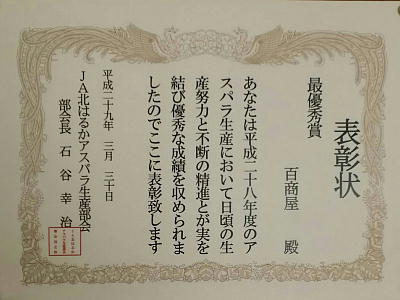 表彰状
最優秀賞
百商屋 殿
あなたは平成二十八年度のア
スパラ生産において日頃の生
産努力と不断の精進とが実を
結び優秀な成績を収められま
したのでここに表彰致します
平成二十九年 三月 三十日
JA北はるかアスパラ生産部会
部会長 石谷幸治